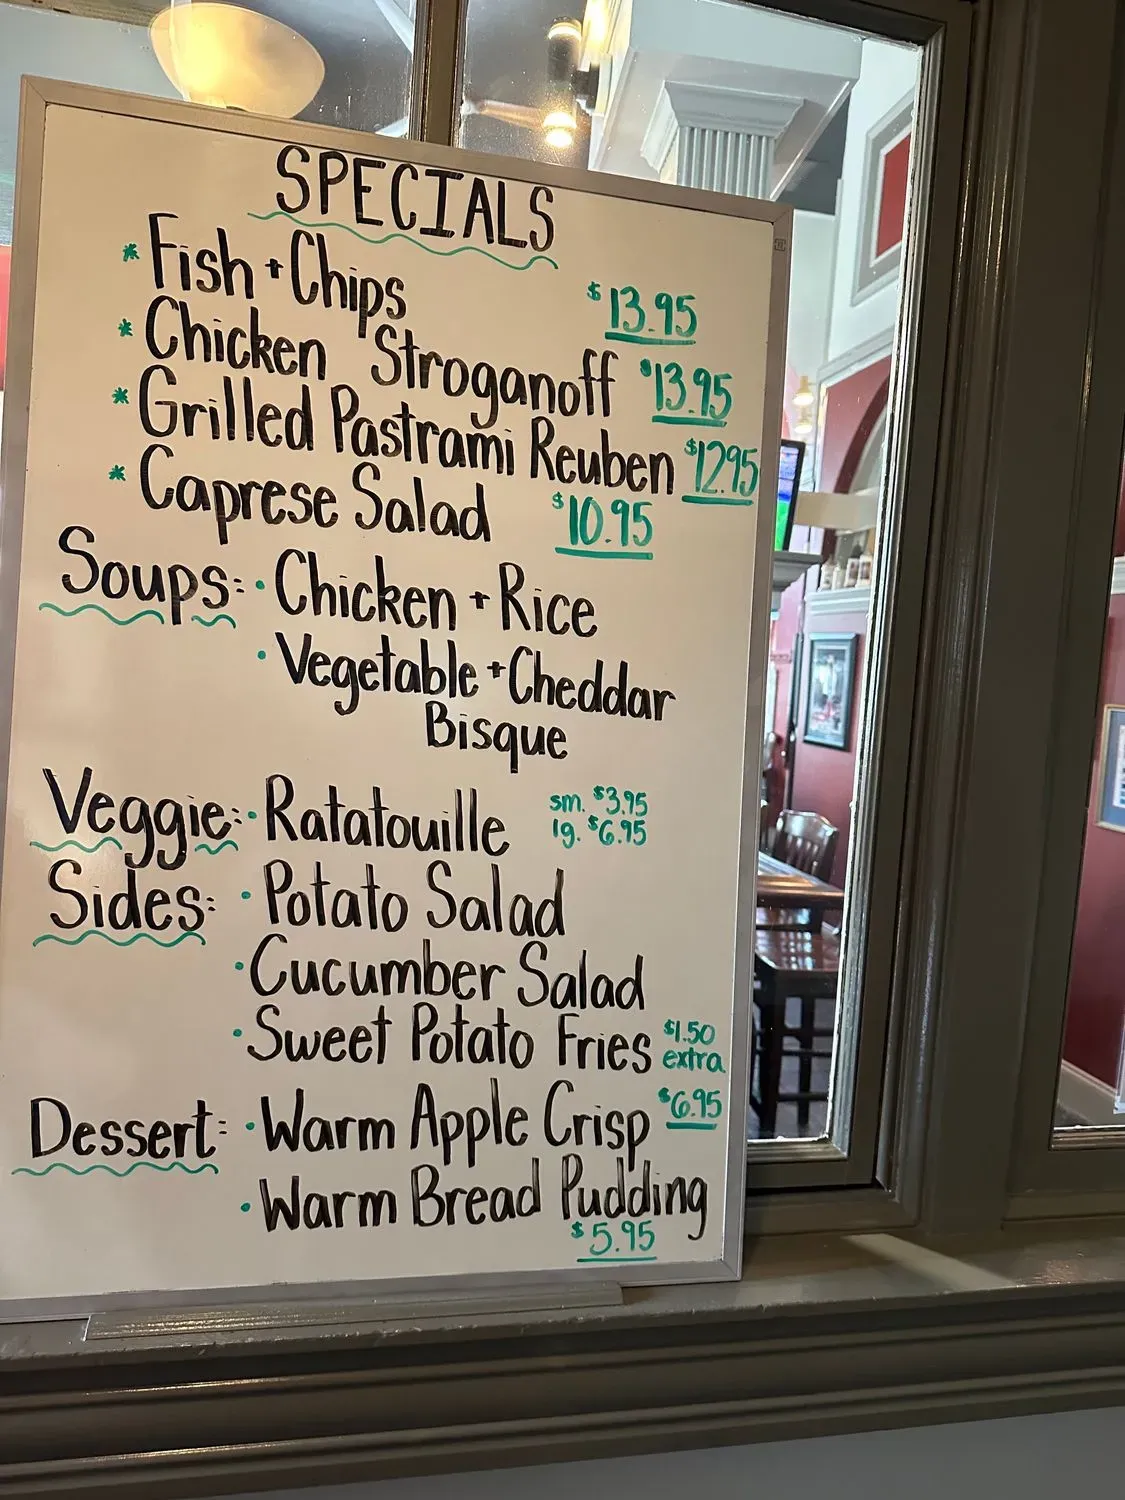 SPECIALS
* Fish + Chips $13.95
* Chicken Stroganoff $13.95
* Grilled Pastrami Reuben $12.95
* Caprese Salad $10.95
Soups: · Chicken + Rice
· Vegetable + Cheddar
Bisque
Veggie: · Ratatouille sm. $3.95
lg. $6.95
Sides: · Potato Salad
· Cucumber Salad
· Sweet Potato Fries $1.50
extra
Dessert: · Warm Apple Crisp $6.95
· Warm Bread Pudding
$5.95